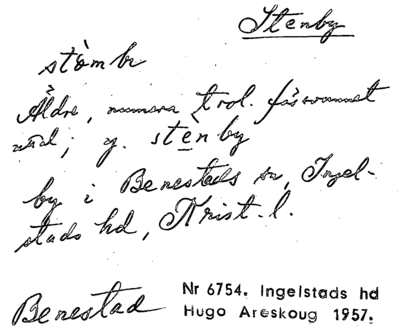 Stenby
stòmbr
Äldre, numera trol. försvunnet
uttal; y. stènby
by i Benestads sn, Ingel-
stads hd, Krist. l.
Benestad
Nr 6754. Ingelstads hd
Hugo Areskoug 1957.